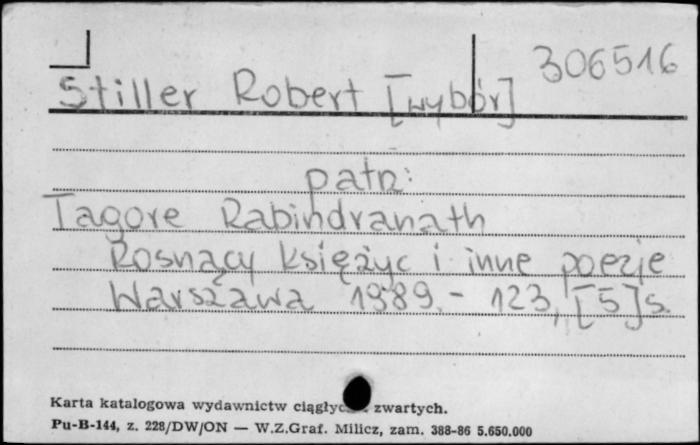 306516
Stiller Robert [wybór]
patrz:
Tagore Rabindranath
Rosnący księżyc i inne poezje
Warszawa 1989. - 123, [5] s.
Karta katalogowa wydawnictw ciągłyc zwartych.
Pu-B-144, z. 228/DW/ON — W.Z.Graf. Milicz, zam. 388-86 5.650.000